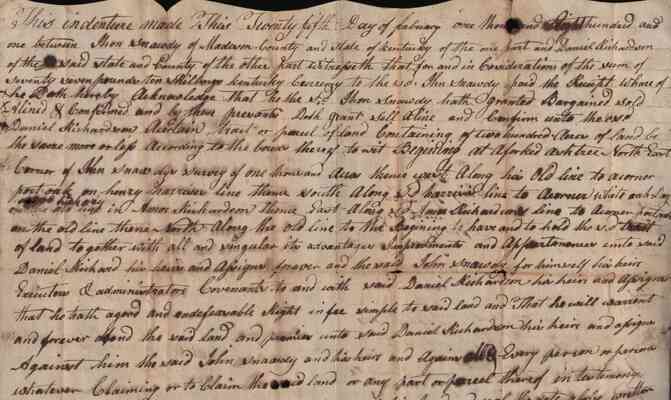 This indenture made This Twenty fifth Day of febuary one thousand Eight hundred and
one between Jhon Snawdy of Madison County and State of kentucky of the one part and Daniel Richardson
of the said state and County of the other part witnesseth that for and in Considerations of the sum of
Seventy seven pounds ten Shillings kentucky Currency to the sd. Jhn Snawdy paid the Receipt whare of
he Doth hereby Acknowledge that he the sd. Jhon Snawdy hath granted Bargained sold
Aliend & Confirmed and by these presents Doth grant sell Aline and Confirm unto the sd
Daniel Richardson A Certain tract or parcel of land Containing of two hundred Acres of land be
the same more or less According to the bounds thereof to wit Begining at A forked ash tree North East
Corner of Jhn Snawdys survey of one thousand Acres thence west Along his Old line to a corner
port oak on henry harrises line thence South Along sd harrises line to A corner white oak
and hickory in Amos Richardson thence East Along sd Amos Richardsons line to A corner
on the old line thence North Along the old line to the Begining to have and to hold the sd tract
of land together with all and singular its advantages Improvements and Appurtanances unto said
Daniel Richard his heirs and Assigns forever and the said John Snawdy for himself his heirs
Executors & administrators Covenants to and with said Daniel Richardson his heirs and Assigns
that he hath a good and endefeasable Right in fee simple to said land and that he will warrent
and forever defend the said land and premises unto said Daniel Richardson his heirs and assigns
Against him the said John Snawdy and his heirs and Again All Every person or persons
whatever Claiming or to Claim the said land or any part or parcel thereof in testemony